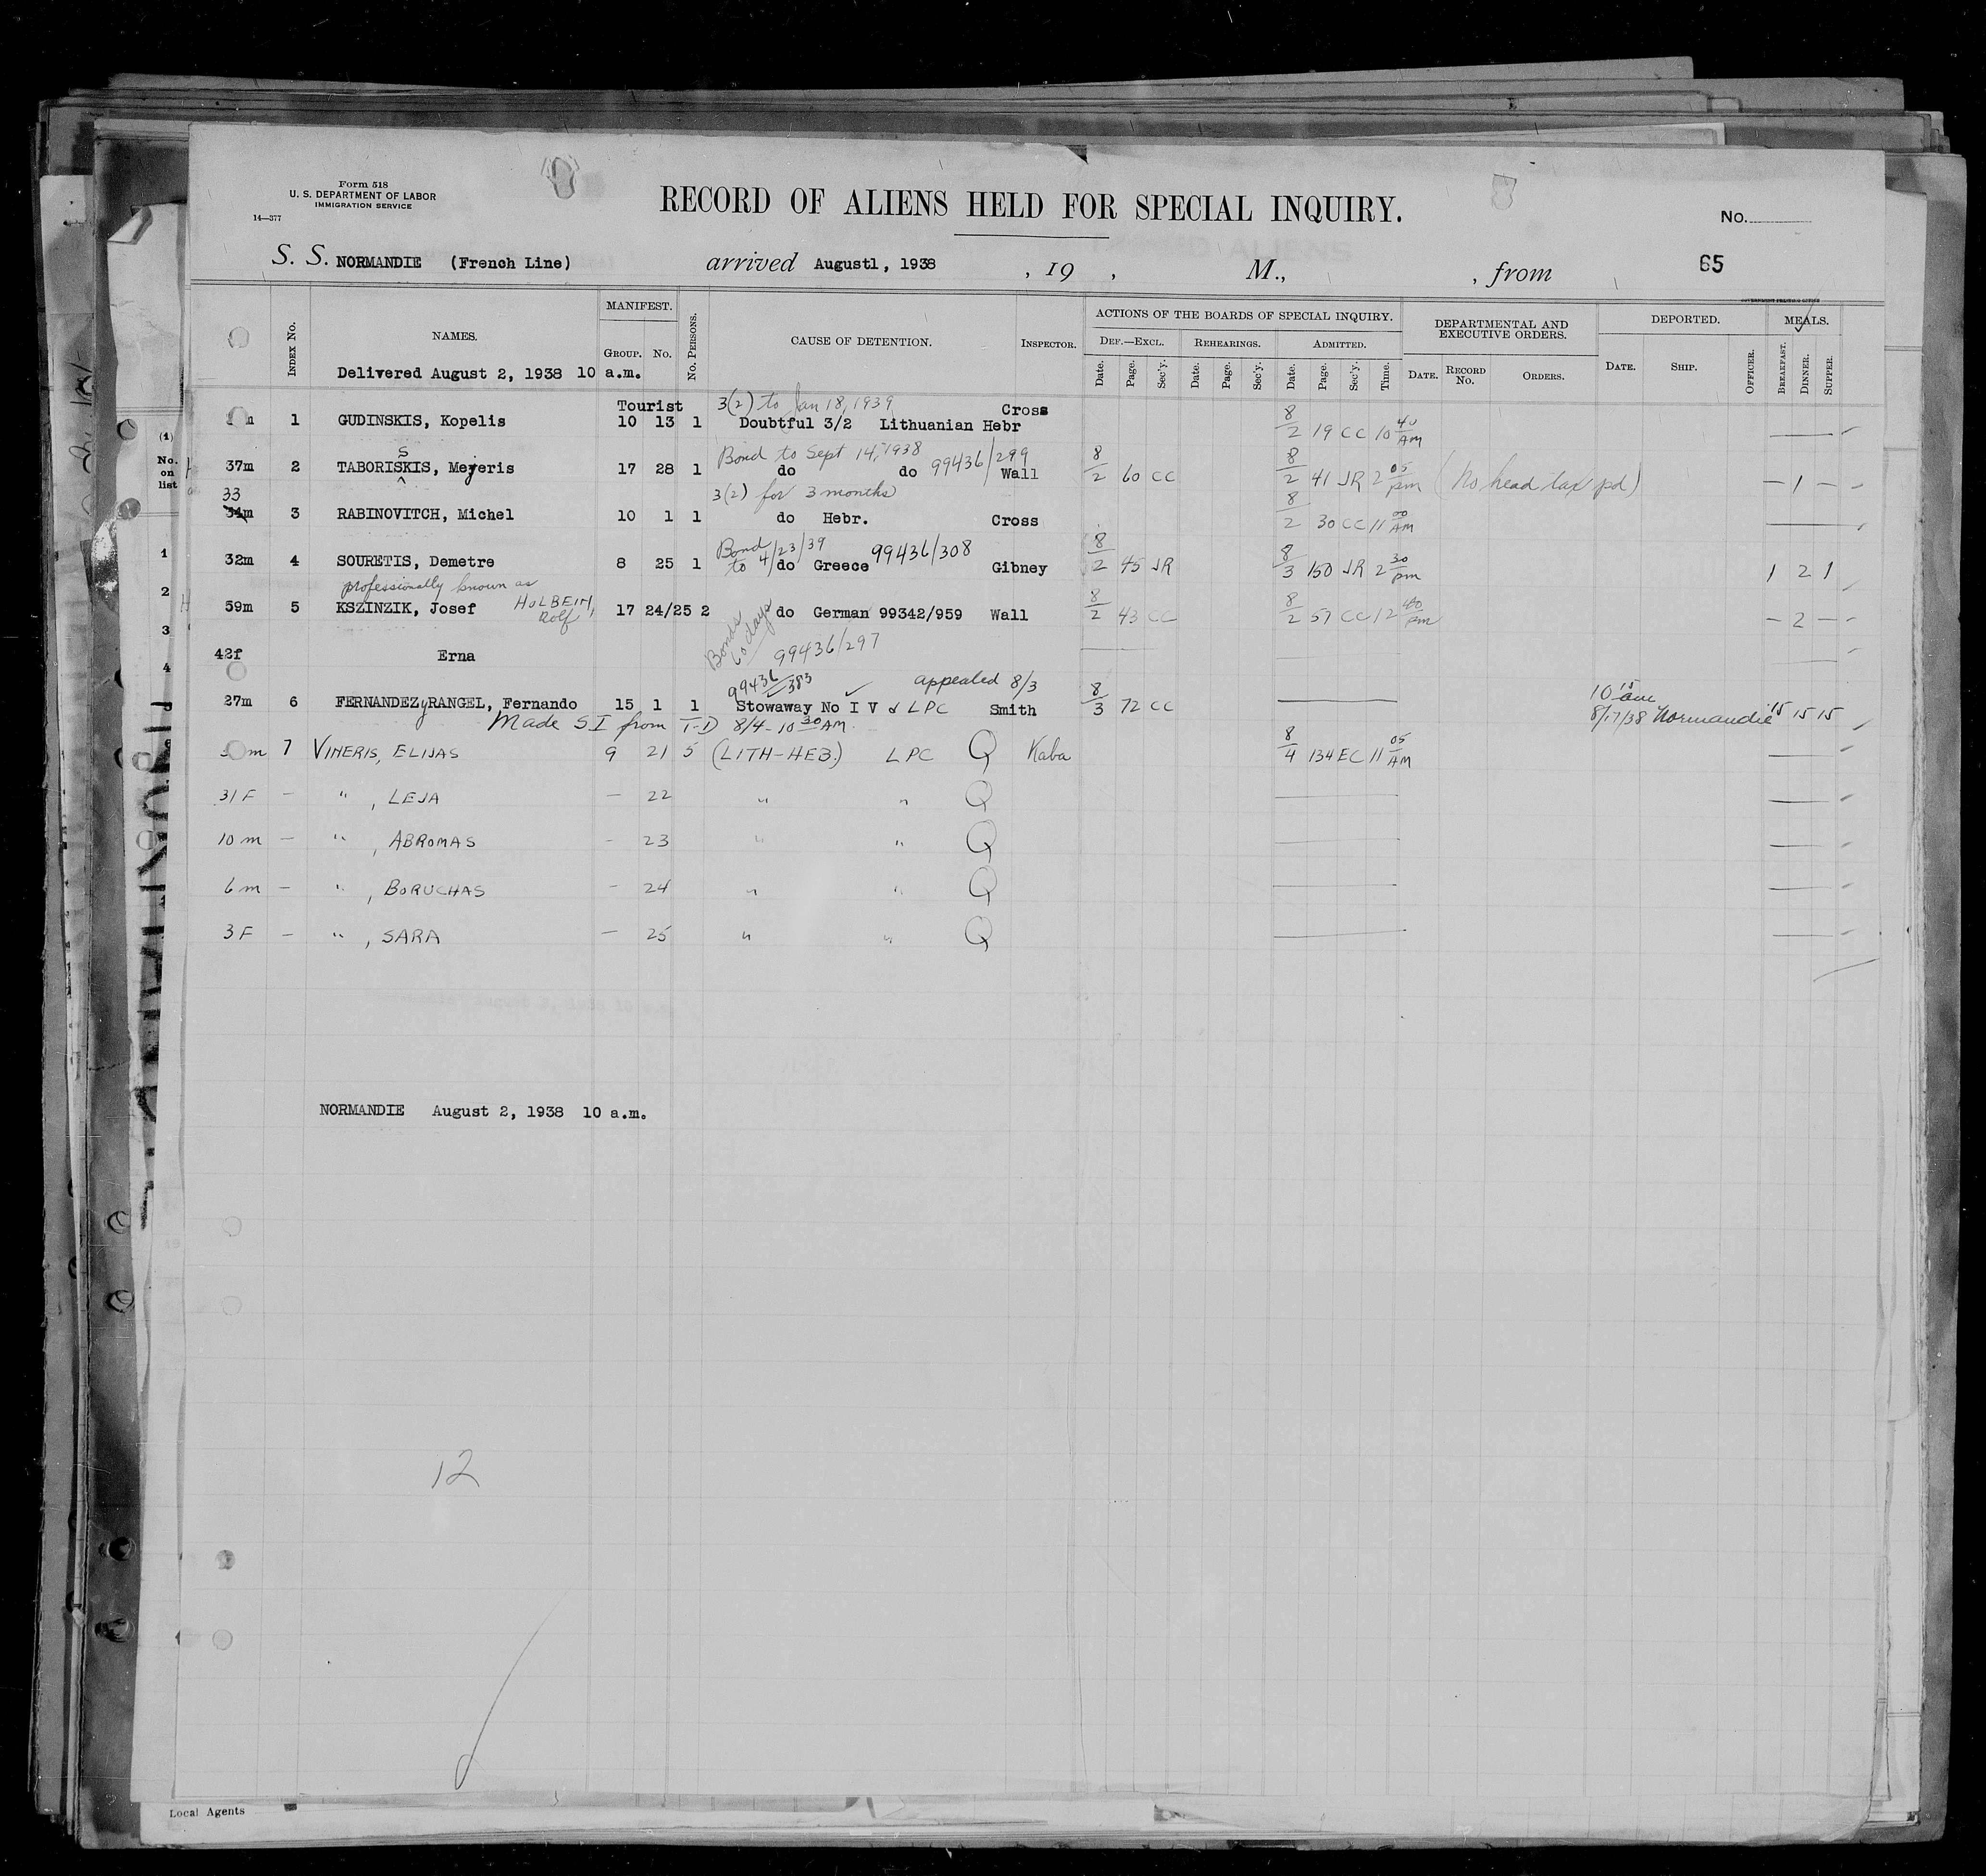 Form 518
U. S. DEPARTMENT OF LABOR
IMMIGRATION SERVICE
14—377
RECORD OF ALIENS HELD FOR SPECIAL INQUIRY.
No.
S. S. NORMANDIE (French Line) arrived August1, 1938 , 19 , M., , from 65
INDEX No. NAMES. MANIFEST. GROUP. No. No. PERSONS. CAUSE OF DETENTION. INSPECTOR. ACTIONS OF THE BOARDS OF SPECIAL INQUIRY. DEPARTMENTAL AND EXECUTIVE ORDERS. DEPORTED. MEALS.
DEF.—EXCL. REHEARINGS. ADMITTED.
Date. Page. Sec'y. Date. Page. Sec'y. Date. Page. Sec'y. Time. DATE. RECORD No. ORDERS. DATE. SHIP. OFFICER. BREAKFAST. DINNER. SUPPER.
Delivered August 2, 1938 10 a.m.
Tourist 3(2) to Jan 18, 1939 Cross
m 1 GUDINSKIS, Kopelis 10 13 1 Doubtful 3/2 Lithuanian Hebr 8/2 19 CC 10 40 AM
S Bond to Sept 14, 1938
37m 2 TABORISKIS, Meyeris 17 28 1 do do 99436/299 Wall 8/2 60 CC 8/2 41 JR 2 05 pm (No head tax pd) — 1 —
33 3(2) for 3 months
34m 3 RABINOVITCH, Michel 10 1 1 do Hebr. Cross 8/2 30 CC 11 00 AM
Bond to 4/23/39
32m 4 SOURETIS, Demetre 8 25 1 do Greece 99436/308 Gibney 8/2 45 JR 8/3 150 JR 2 30 pm 1 2 1
professionally known as
59m 5 KSZINZIK, Josef HOLBEIN, Rolf 17 24/25 2 do German 99342/959 Wall 8/2 43 CC 8/2 57 CC 12 40 pm — 2 —
Bonds 60 days
42f Erna 99436/297
99436/383 appealed 8/3
27m 6 FERNANDEZ y RANGEL, Fernando 15 1 1 Stowaway No I V & LPC Smith 8/3 72 CC 10 15 am 8/17/38 Normandie 15 15 15
Made SI from T-D 8/4 - 10 30 AM.
m 7 VINERIS, ELIJAS 9 21 5 (LITH-HEB.) LPC Q Kaba 8/4 134 EC 11 05 AM
31 F — " , LEJA — 22 " " Q
10 m — " , ABROMAS - 23 " " Q
6 m — " , BORUCHAS - 24 " " Q
3 F — " , SARA — 25 " " Q
NORMANDIE August 2, 1938 10 a.m.
12
(1)
No.
on
list
1
2
3
4
Local Agents